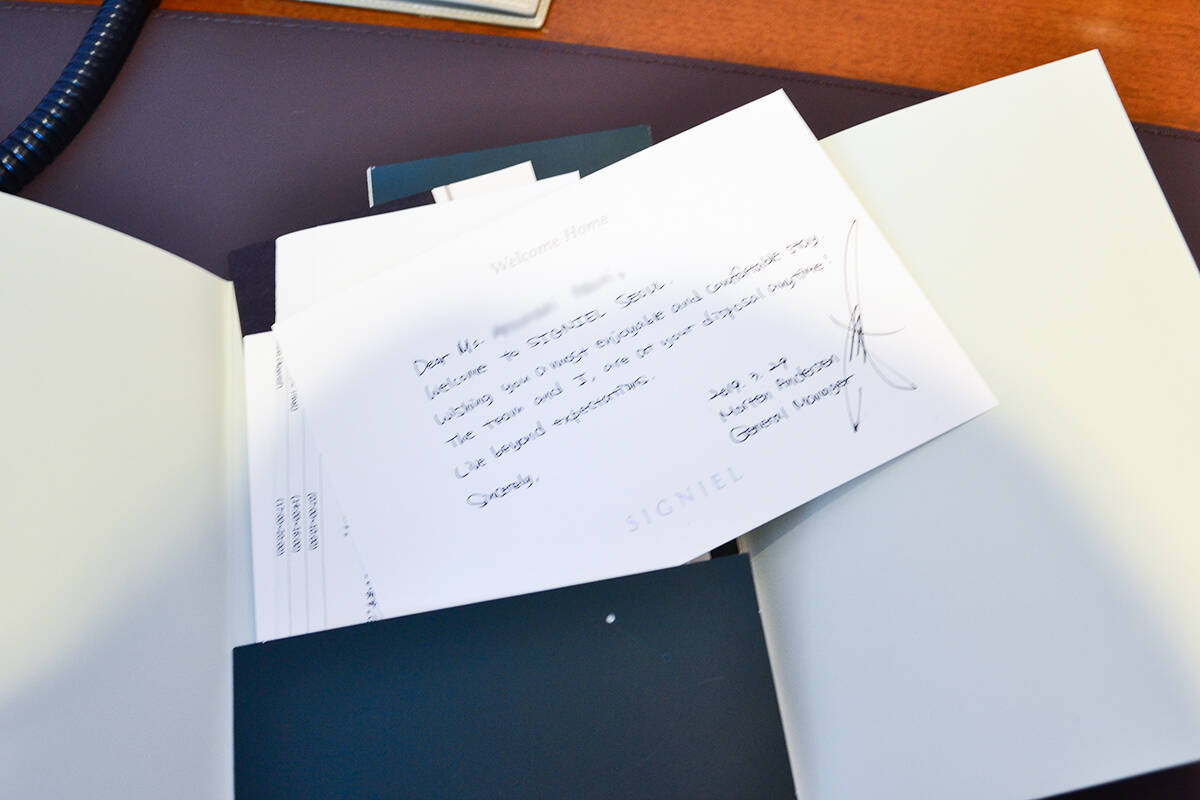 Welcome Home
Dear Ms.
Welcome to SIGNIEL SEOUL.
Wishing you a most enjoyable and comfortable stay.
The team and I, are at your disposal anytime!
Live beyond expectations.
Sincerely,
2019. 3. 29
Morten Andersen
General Manager
SIGNIEL
(07:00~10:00)
(14:00~16:00)
(17:00~20:00)